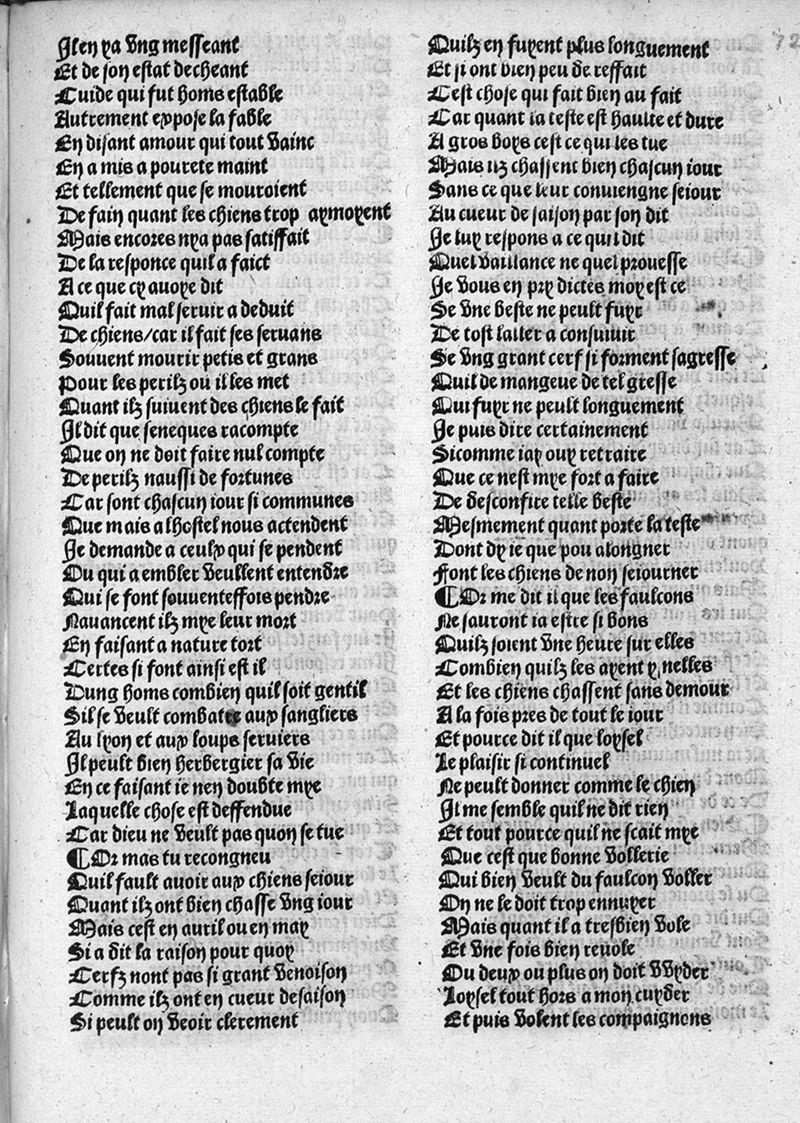 Il en ya ung messeant
Et de son estat decheant
Cuide qui fut homs estable
Autrement expose la fable
En disant amour qui tout vainc
En a mis a pourete maint
Et tellement que se mouroient
De fain quant les chiens trop aymoyent
Mais encores nya pas satiffait
De la responce quil a faict
A ce que cy avoye dit
Quil fait mal servir a deduit
De chiens/car il fait ses servans
Souvent mourir petis et grans
Pour les perilz ou il les met
Quant ilz suivent des chiens le fait
Il dit que seneques racompte
Que on ne doit faire nul compte
De perilz naussi de fortunes
Car sont chascun iour si communes
Que mais a lhostel nous actendent
Je demande a ceulx qui se pendent
Ou qui a embler veullent entendre
Qui se font souventeffois pendre
Navancent ilz mye leur mort
En faisant a nature tort
Certes si font ainsi est il
Dung homs combien quil soit gentil
Sil se veult combatre aux sangliers
Au lyon et aux loups serviers
Il peult bien herbergier sa vie
En ce faisant ie nen doubte mye
Laquelle chose est deffendue
Car dieu ne veult pas quon se tue
¶ Or mas tu recongneu
Quil fault avoir aux chiens seiour
Quant ilz ont bien chasse ung iour
Mais cest en avril ou en may
Si a dit la raison pour quoy
Cerfz nont pas si grant venoison
Comme ilz ont en cueur desaison
Si peult on veoir clerement
Quilz en fuyent plus longuement
Et si ont bien peu de reffait
Cest chose qui fait bien au fait
Car quant la teste est haulte et dure
A gros boys cest ce qui les tue
Mais ilz chassent bien chascun iour
Sans ce que leur conviengne seiour
Au cueur de saison par son dit
Je luy respons a ce quil dit
Quel vaillance ne quel prouesse
Je vous en pry dictes moy est ce
Se une beste ne peult fuyr
De tost laller a consuivir
Se ung grant cerf si forment sagresse
Quil de mangeue de tel gresse
Qui fuyr ne peult longuement
Je puis dire certainement
Sicomme iay ouy retraire
Que ce nest mye fort a faire
De desconfire telle beste
Mesmement quant porte la teste
Dont dy ie que pou alongner
Font les chiens de non seiourner
¶ Or me dit il que les faulcons
Ne sauront ia estre si bons
Quilz soient une heure sur elles
Combien quilz les ayent ynelles
Et les chiens chassent sans demour
A la fois pres de tout le iour
Et pource dit il que loysel
Le plaisir si continuel
Ne peult donner comme le chien
Il me semble quil ne dit rien
Et tout pource quil ne scait mye
Que cest que bonne vollerie
Qui bien veult du faulcon voller
On ne le doit trop ennuyer
Mais quant il a tresbien vole
Et une fois bien revole
Ou deux ou plus on doit vuyder
Loysel tout hors a mon cuyder
Et puis volent les compaignons